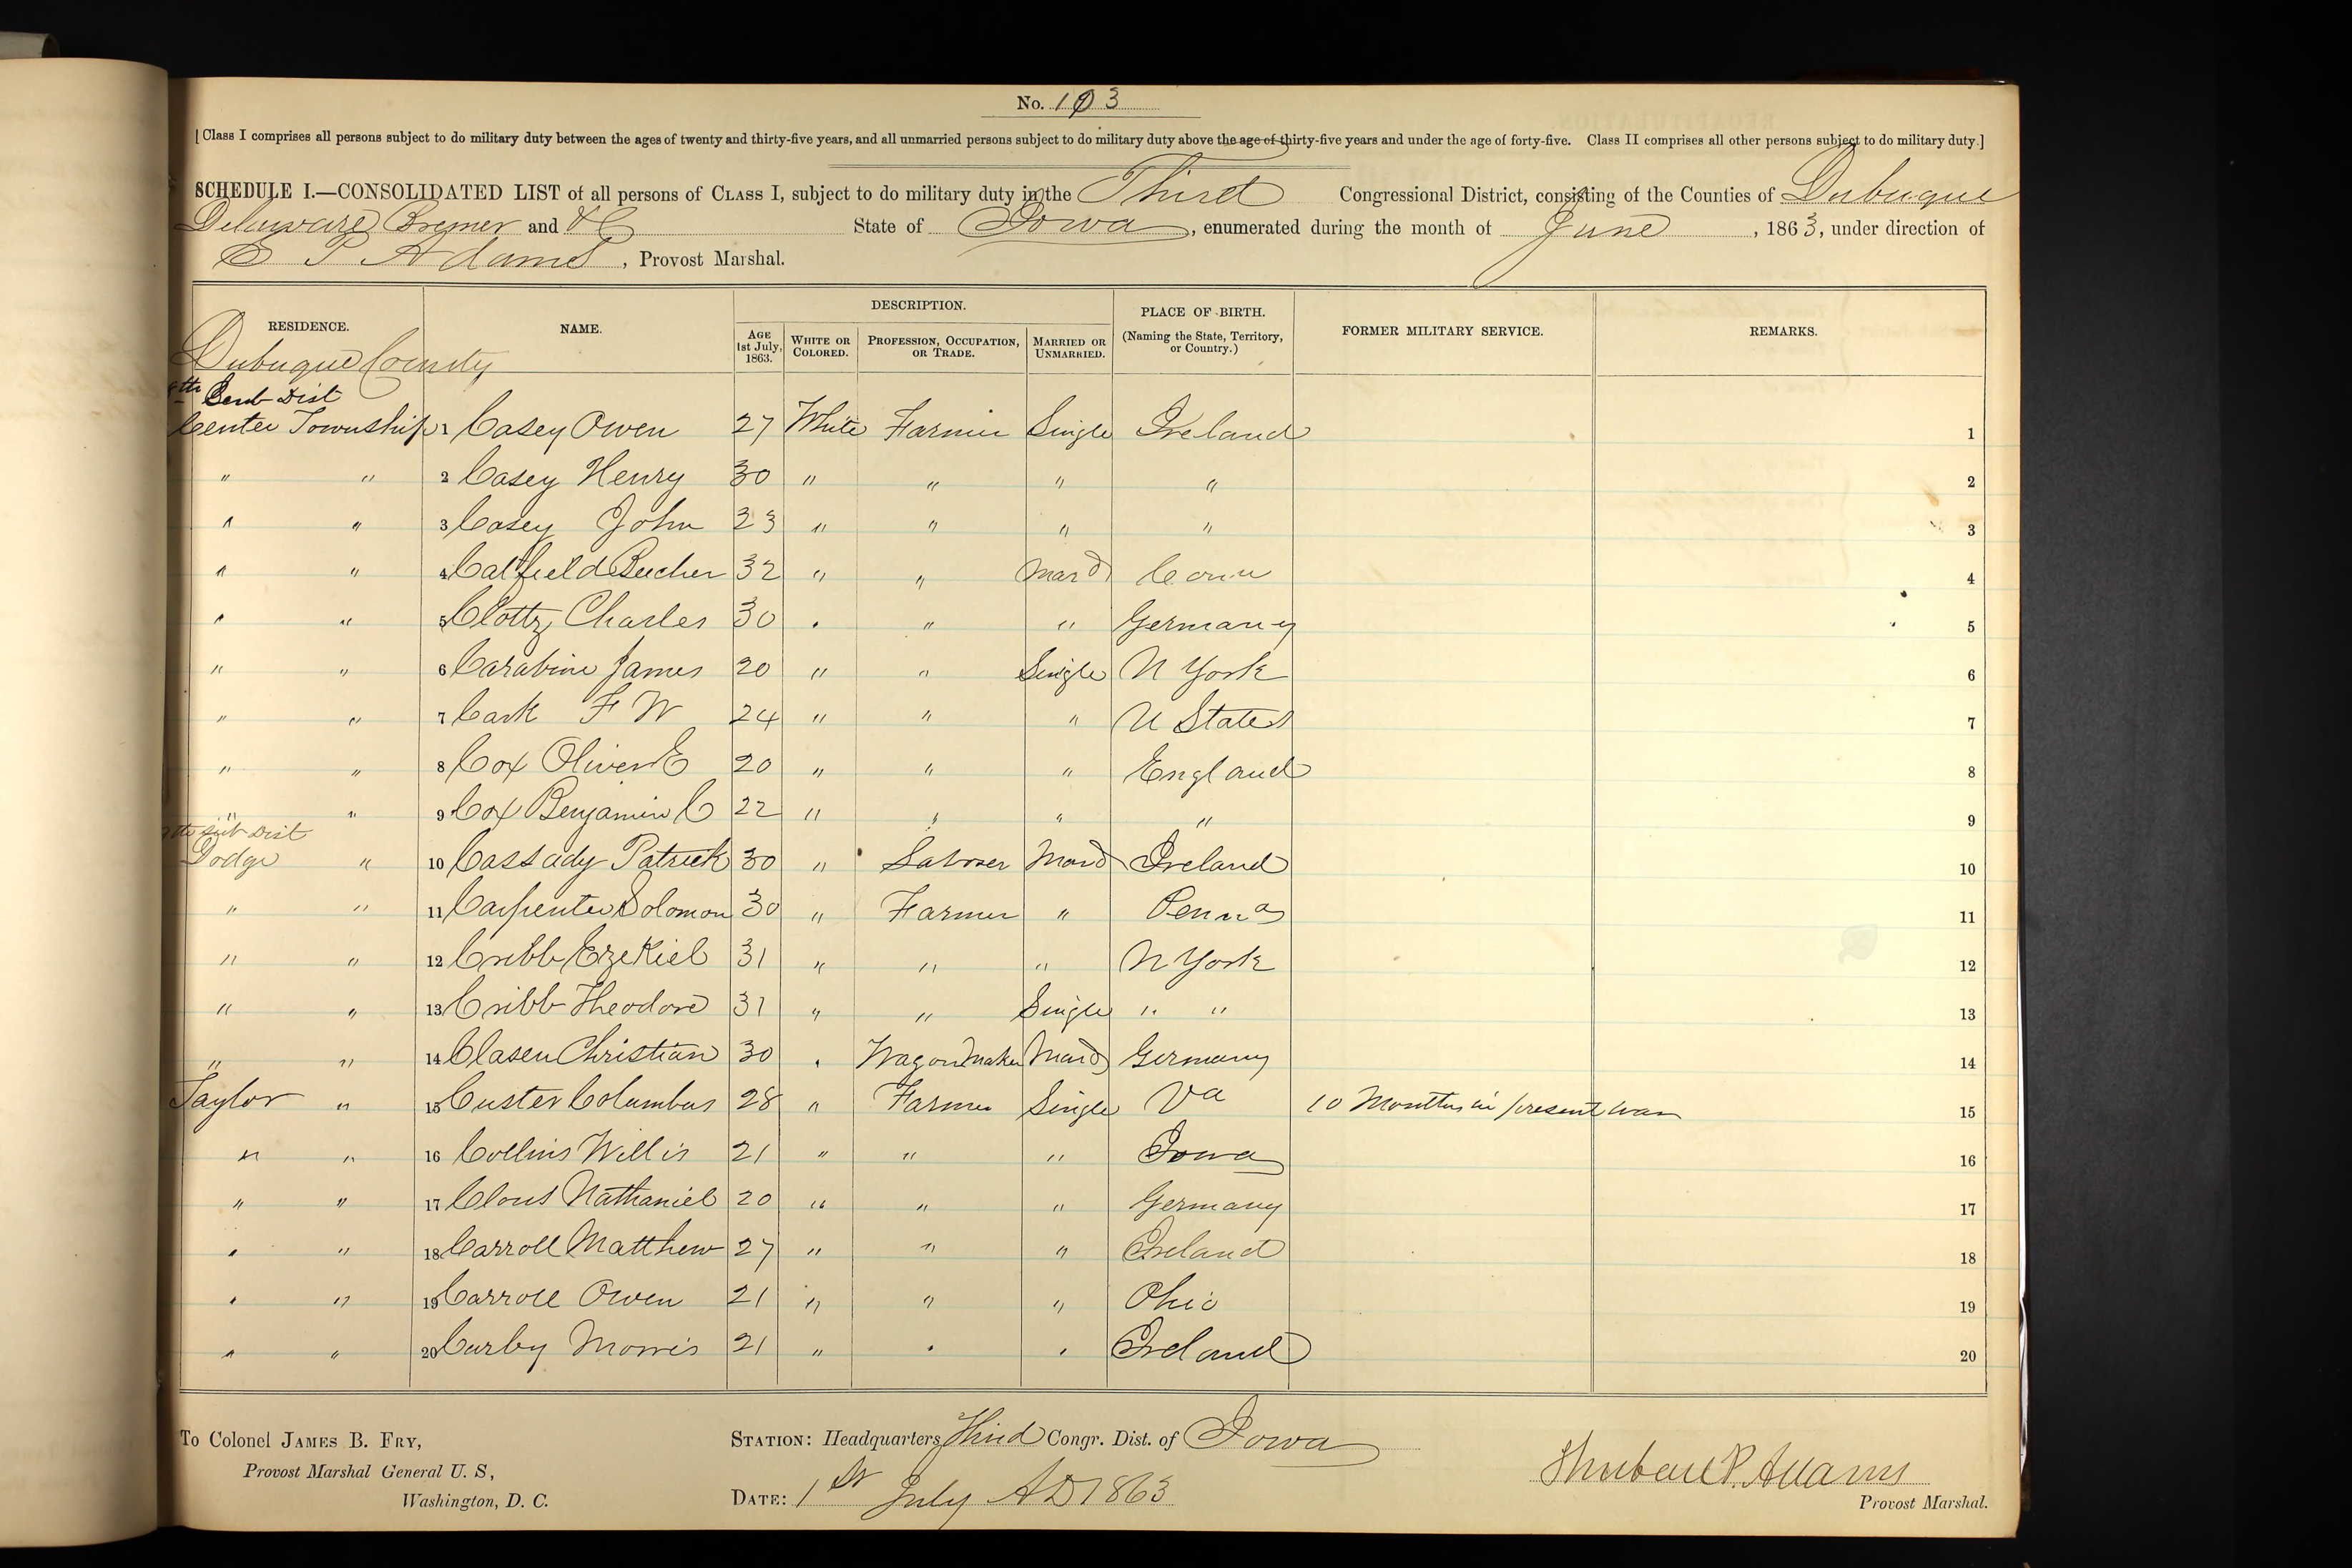 No. 103
[Class I comprises all persons subject to do military duty between the ages of twenty and thirty-five years, and all unmarried persons subject to do military duty above the age of thirty-five years and under the age of forty-five. Class II comprises all other persons subject to do military duty.]
SCHEDULE I.—CONSOLIDATED LIST of all persons of CLASS I, subject to do military duty in the Third Congressional District, consisting of the Counties of Dubuque
Delaware Bremer and &C State of Iowa, enumerated during the month of June, 1863, under direction of
P Adams, Provost Marshal.
RESIDENCE. NAME. DESCRIPTION. PLACE OF BIRTH. (Naming the State, Territory, or Country.) FORMER MILITARY SERVICE. REMARKS.
AGE 1st July, 1863. WHITE OR COLORED. PROFESSION, OCCUPATION, OR TRADE. MARRIED OR UNMARRIED.
Dubuque County
Sub Dist
Center Township 1 Casey Owen 27 White Farmer Single Ireland 1
" " 2 Casey Henry 30 " " " " 2
" " 3 Casey John 23 " " " " 3
" " 4 Catfield Beecher 32 " " Mard Conn 4
" " 5 Clottz Charles 30 " " " Germany 5
" " 6 Carabine James 20 " " Single N York 6
" " 7 Cark F W 24 " " " U States 7
" " 8 Cox Oliver E 20 " " " England 8
" " 9 Cox Benjamin C 22 " " " " 9
Sub Dist
Dodge " 10 Cassady Patrick 30 " Laborer Mard Ireland 10
" " 11 Carpenter Solomon 30 " Farmer " Penna 11
" " 12 Cribb Ezekiel 31 " " " N York 12
" " 13 Cribb Theodore 31 " " Single " " 13
" " 14 Clasen Christian 30 " Wagon Maker Mard Germany 14
Taylor " 15 Custer Columbus 28 " Farmer Single Va 10 Months in present war 15
" " 16 Collins Willis 21 " " " Iowa 16
" " 17 Clous Nathaniel 20 " " " Germany 17
" " 18 Carroll Matthew 27 " " " Ireland 18
" " 19 Carroll Owen 21 " " " Ohio 19
" " 20 Curby Morris 21 " " " Ireland 20
To Colonel JAMES B. FRY,
Provost Marshal General U. S,
Washington, D. C.
STATION: Headquarters Third Congr. Dist. of Iowa
DATE: 1st July AD 1863
Shubael P. Adams
Provost Marshal.